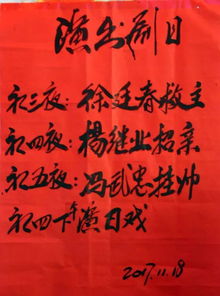 演出剧目
初三夜：徐廷春救主
初四夜：楊继业招亲
初五夜：冯武忠挂帅
初四下午演日戏
2017.11.18